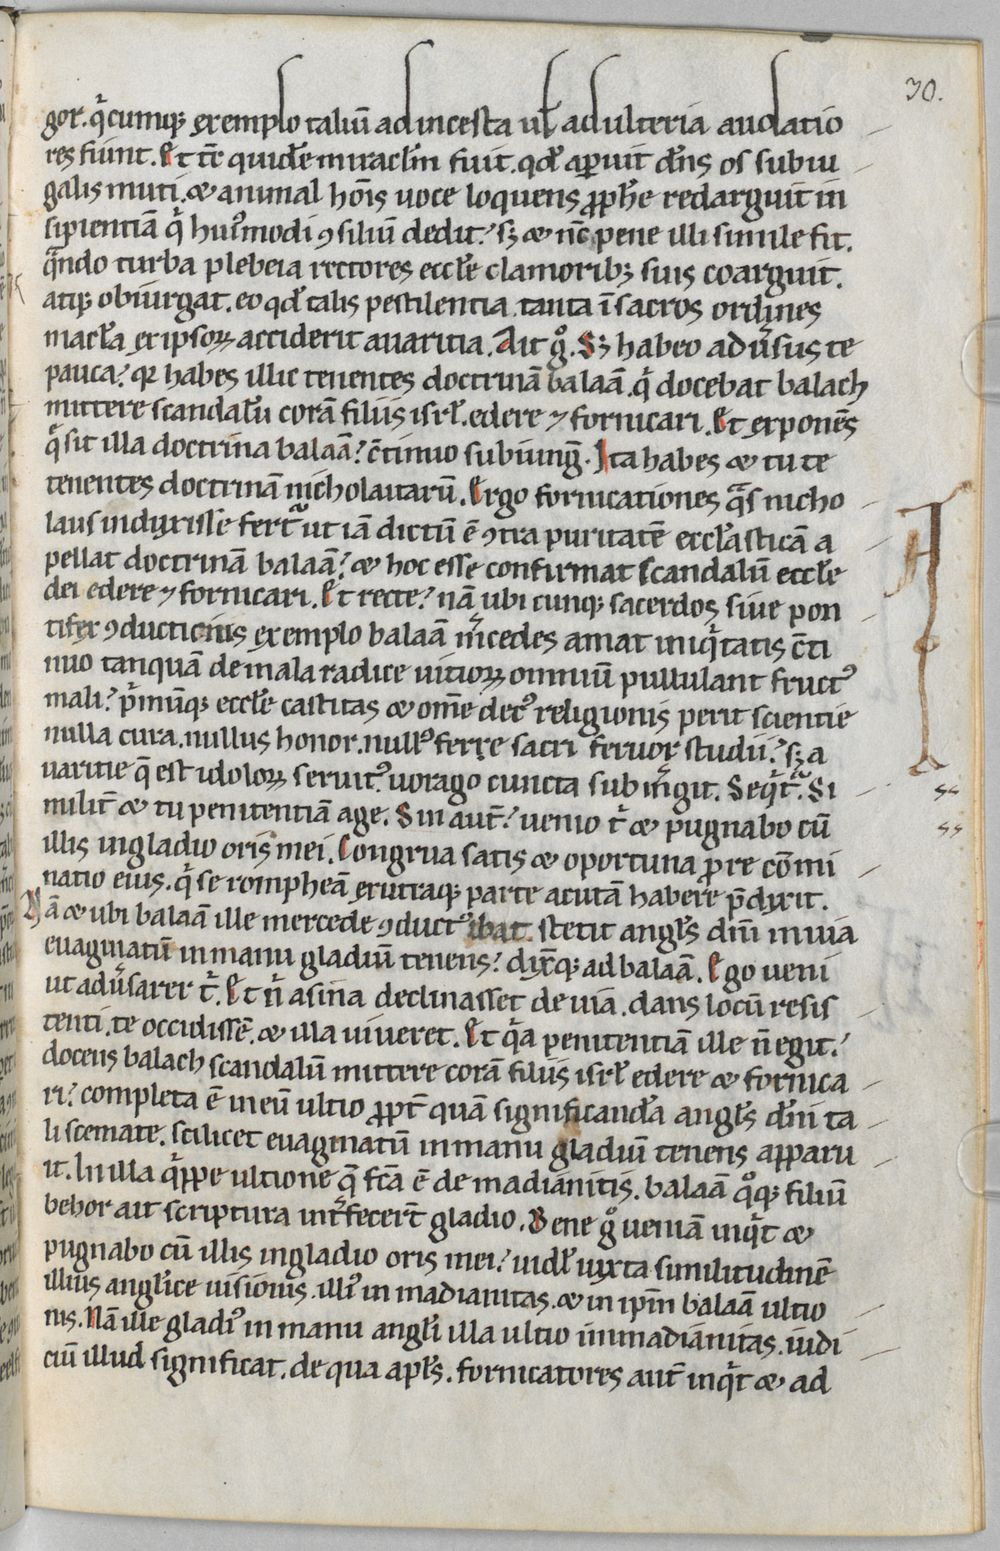 30.
gor. q̓cumq; exemplo taliū ad incesta ul̄ adulteria audatio
res fiunt. Et tc̄ quidē miracl̄m fuit. qd̓ aꝑuit dn̄s os subiu
galis muti. & animal hōis uoce loquens ꝓph̄e redarguit in
sipientiā q̓ huꝰmodi ꝯsiliū dedit. sꝫ & nc̄ pene illi simile fit.
qᷓndo turba plebeia rectores eccl̄e clamoribꝫ suis coarguit.
atqꝫ obiurgat. eo qd̓ talis pestilentia tanta ī sacros ordines
macl̄a ex ipsoꝝ acciderit auaritia. Ait gͦ. Sꝫ habeo adu̓sus te
pauca. qꝛ habes illic tenentes doctrinā balaā. q̓ docebat balach
mittere scandalū corā filiis isrl̄. edere ⁊ fornicari. Et exponēs
q̓ sit illa doctrina balaā. c̄tinuo subiung̅. Ita habes & tu te
tenentes doctrinā nicholaitarū. Ergo fornicationes qᷓs nicho
laus induxisse fert᷑ ut iā dictū ē ꝯtra puritatē eccl̄asticā a
pellat doctrinā balaā. & hoc esse confirmat scandalū eccl̄e
dei edere ⁊ fornicari. Et recte. nā ubi cunqꝫ sacerdos siue pon
tifex ꝯducticius exemplo balaā m̓cedes amat iniq̓tatis c̄ti
nuo tanquā de mala radice uitioꝝ omniū pullulant fructꝰ
mali. p̓mūqꝫ eccl̄e castitas & om̄e decꝰ religionis perit scientie
nulla cura. nullus honor. nullꝰ ferre sacri feruor studii. sꝫ a
uaritie q̄ est idoloꝝ seruitꝰ uorago cuncta subm̓git. Seq̓t᷑. Si
milit̄ & tu penitentiā age. Sin aut̄. uenio t̓ & pugnabo cū
illis in gladio oris mei. Congrua satis & oportuna pre cōmi
natio eius. q̓ se rompheā ex utraqꝫ parte acutā habere p̄dixit.
Nā & ubi balaā ille mercede ꝯductꝰ ibat. stetit angl̄s dn̄i in uia
euaginatū in manu gladiū tenens. dix̄qꝫ ad balaā. Ego ueni
ut adu̓sarer t̓. Et n̓ asina declinasset de uia. dans locū resis
tenti. te occidissē. & illa uiueret. Et q̓a penitentiā ille n̄ egit.
docens balach scandalū mittere corā filiis isrl̄ edere & fornica
ri. completa ē in eū ultio ꝓpt̄ quā significandā angl̄s dn̄i ta
li scemate. scilicet euaginatū in manu gladiū tenens apparu
it. In illa q̓ppe ultione q̄ fc̄a ē de madianitis. balaā qͦqꝫ filiū
behor ait scriptura int̓fecert̄ gladio. Bene gͦ ueniā inq̓t &
pugnabo cū illis in gladio oris mei. uidl̄ iuxta similitudinē
illius angl̄ice uisionis. illiꝰ in madianitas. & in ip̄m balaā ultio
nis. Nā ille gladiꝰ in manu angl̄i illa ultio in madianitas. iudi
ciū illud significat. de qua apl̄s. fornicatores aut̄ inq̓t & ad